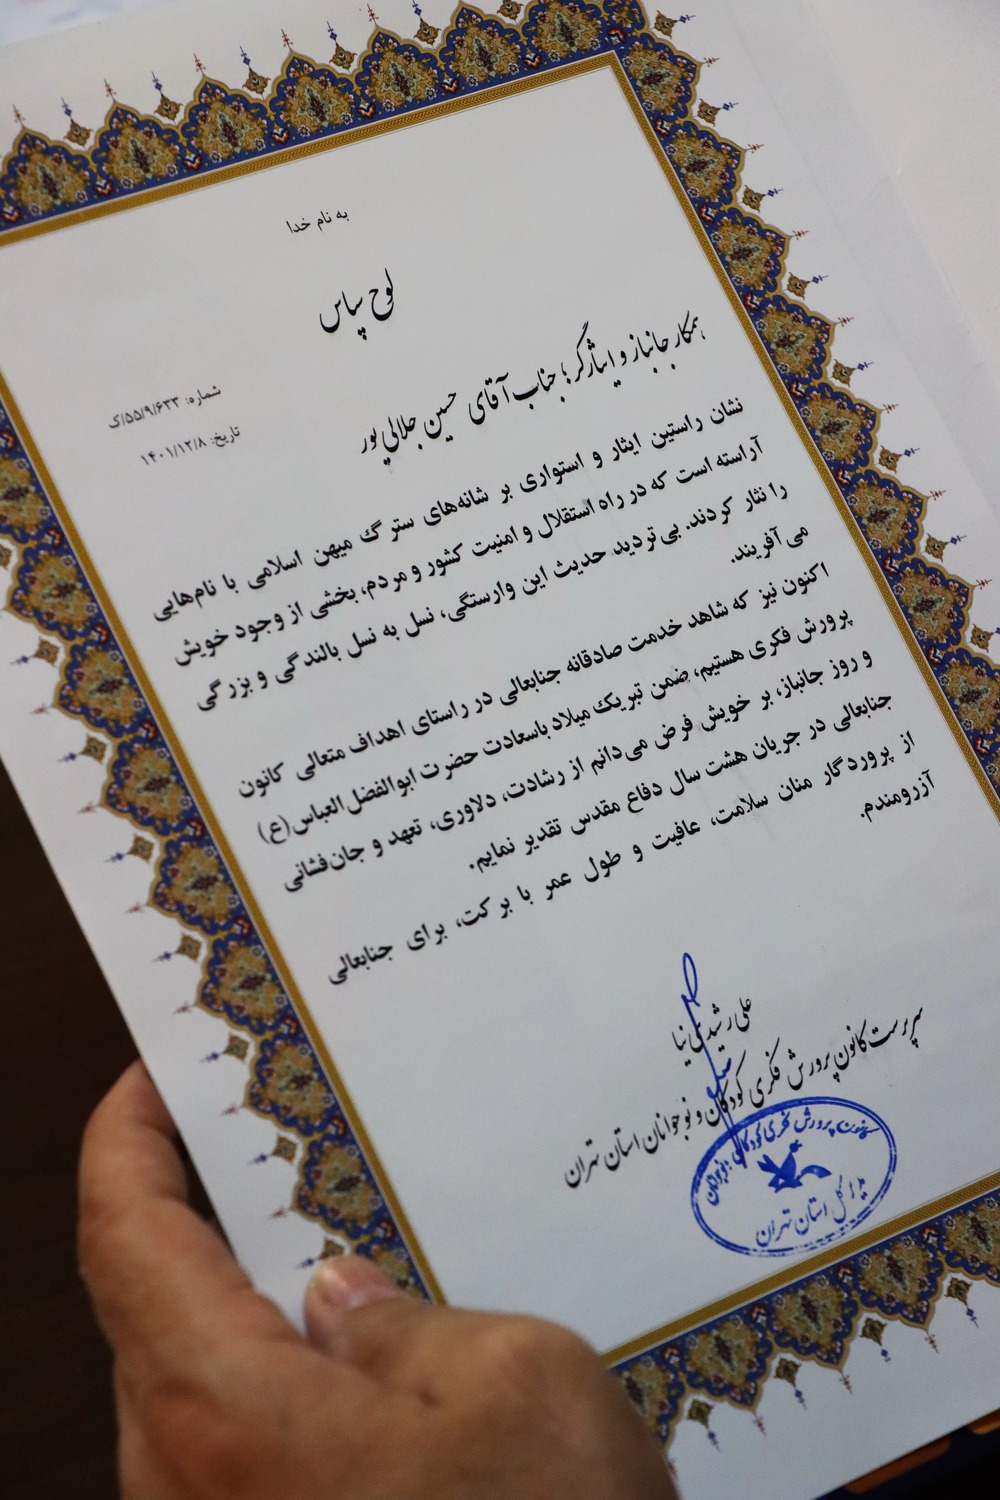 به نام خدا
لوح سپاس
شماره: ۵۵/۹/۶۳۳/ک
تاریخ: ۱۴۰۱/۱۲/۸
همکار جانباز و ایثارگر؛ جناب آقای حسین جلالی پور
نشان راستین ایثار و استواری بر شانه‌های سترگ میهن اسلامی با نام‌هایی
آراسته است که در راه استقلال و امنیت کشور و مردم، بخشی از وجود خویش
را نثار کردند. بی‌تردید حدیث این وارستگی، نسل به نسل بالندگی و بزرگی
می‌آفریند.
اکنون نیز که شاهد خدمت صادقانه جنابعالی در راستای اهداف متعالی کانون
پرورش فکری هستیم، ضمن تبریک میلاد باسعادت حضرت ابوالفضل‌العباس(ع)
و روز جانباز، بر خویش فرض می‌دانم از رشادت، دلاوری، تعهد و جان‌فشانی
جنابعالی در جریان هشت سال دفاع مقدس تقدیر نمایم.
از پروردگار منان سلامت، عافیت و طول عمر با برکت، برای جنابعالی
آرزومندم.
علی رشیدی نیا
سرپرست کانون پرورش فکری کودکان و نوجوانان استان تهران
کانون پرورش فکری کودکان و نوجوانان
مدیر کل استان تهران